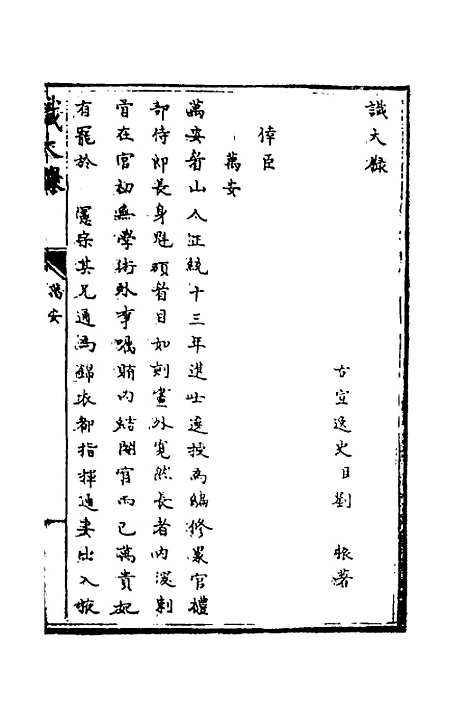 識大錄
古宣逸史臣劉 振著
倖臣
萬安
萬安眉山人正統十三年進士選授為編修累官禮
部侍郎長身魁碩眉目如刻畫外寬然長者內深刺
骨在官初無學術外事囑賄內結閹宦而已萬貴妃
有寵於 憲宗其兄通為錦衣都指揮通妻出入掖
識大錄
萬安